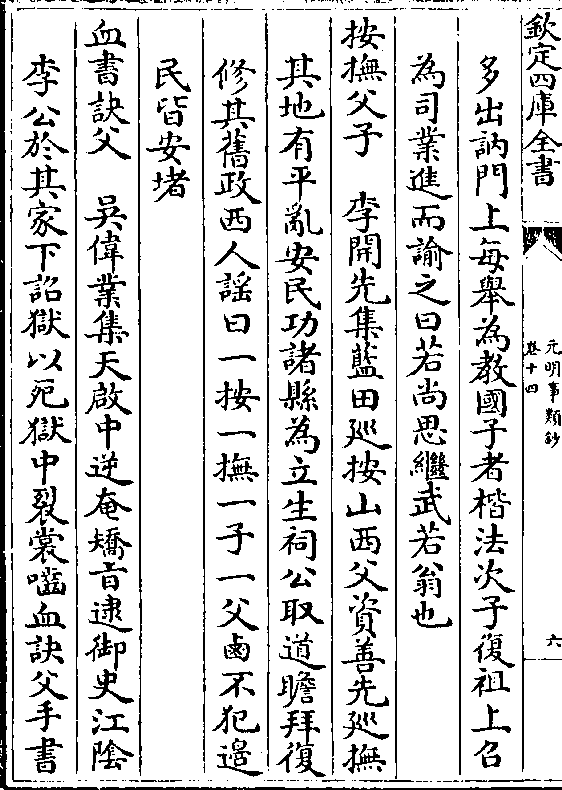 欽定四庫全書
元明事類鈔
卷十四
六
多出訥門上每舉為教國子者楷法次子復祖上召
為司業進而諭之曰若尚思繼武若翁也
按撫父子　李開先集藍田廵按山西父資善先廵撫
其地有平亂安民功諸縣為立生祠公取道瞻拜復
修其舊政西人謡曰一按一撫一子一父鹵不犯邊
民皆安堵
血書訣父　吳偉業集天啟中逆奄矯㫖逮御史江陰
李公於其家下詔獄以死獄中裂裳嚙血訣父手書